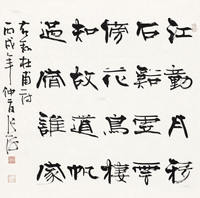 江動月移
石谿虛雲
傍花鳥棲
知故道帆
過宿誰家
右錄杜甫詩
丙戌年仲